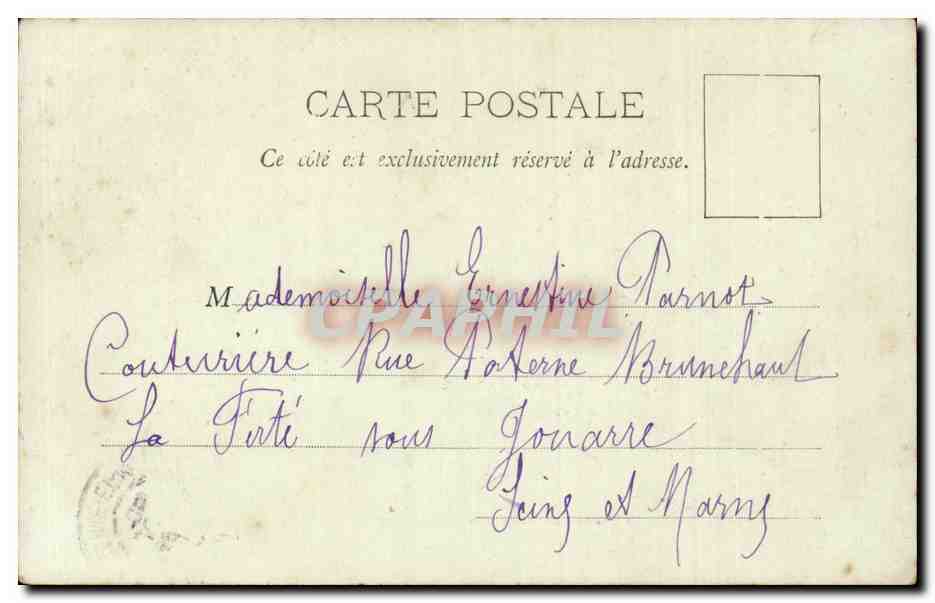 CARTE POSTALE
Ce côté est exclusivement réservé à l'adresse.
Mademoiselle Ernestine Parnot
Couturière Rue Poterne Brunehaut
La Ferté sous Jouarre
Seine et Marne
CPAPHIL